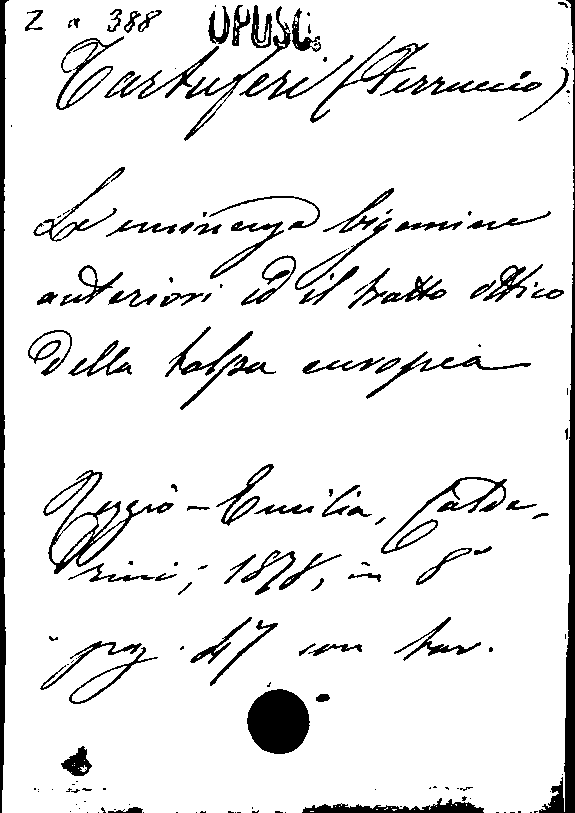 Z a 388 OPUSC.
Tartuferi (Ferruccio)
Le eminenze bigemine
anteriori ed il tratto ottico
della talpa europea
Reggio-Emilia, Calde-
rini, 1878, in 8°
pag. 47 con tav.